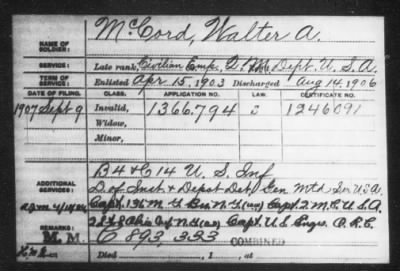 NAME OF SOLDIER: McCord, Walter A.
SERVICE: Late rank, Civilian Emp., Q. M. Dept. U. S. A.
TERM OF SERVICE: Enlisted Apr 15, 1903 Discharged Aug 14, 1906
DATE OF FILING. CLASS. APPLICATION NO. LAW. CERTIFICATE NO.
1907 Sept 9 Invalid, 1366.794 1246091
Widow,
Minor,
B 4 & C 14 U. S. Inf
ADDITIONAL SERVICES: D. of Inst & Depot Det, Gen Mtd Ser U.S.A
Capt. 136 M. G. Bn N. G. Capt. 2 M. C. U. S. A
2 & 8 Ohio Inf N. G. Capt. U. S. Engrs. O. R. C.
REMARKS: M. M. C 893,323 COMBINED
Died , 1 , at